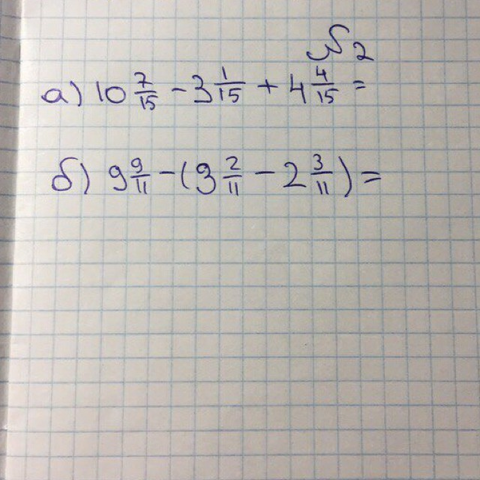 №2
а) 10 7/15 - 3 1/15 + 4 4/15 =
б) 9 9/11 - (9 2/11 - 2 3/11) =